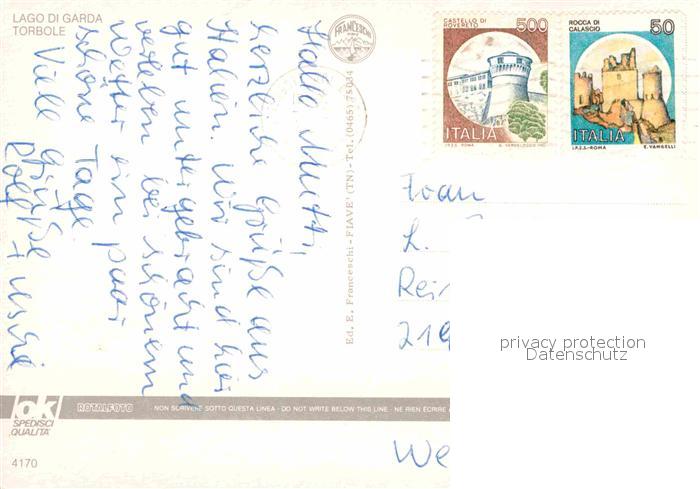 LAGO DI GARDA
TORBOLE
FRANCESCHI
CASTELLO DI
ROVERETO
500
ITALIA
I.P.Z.S. ROMA
ROCCA DI
CALASCIO
50
ITALIA
I.P.Z.S.-ROMA
E. VANGELLI
Hallo Mutti,
herzliche Grüße aus
Italien. Wir sind hier
gut untergebracht und
verleben bei schönem
Wetter ein paar
schöne Tage.
Viele Grüße
Rolf +
Ed. E. Franceschi-FIAVE' (TN)-Tel. (0465) 75034
Frau
L.
Rei
219
We
privacy protection
Datenschutz
ok
SPEDISCI
QUALITÀ
ROTALFOTO
NON SCRIVERE SOTTO QUESTA LINEA - DO NOT WRITE BELOW THIS LINE - NE RIEN ÉCRIRE
4170